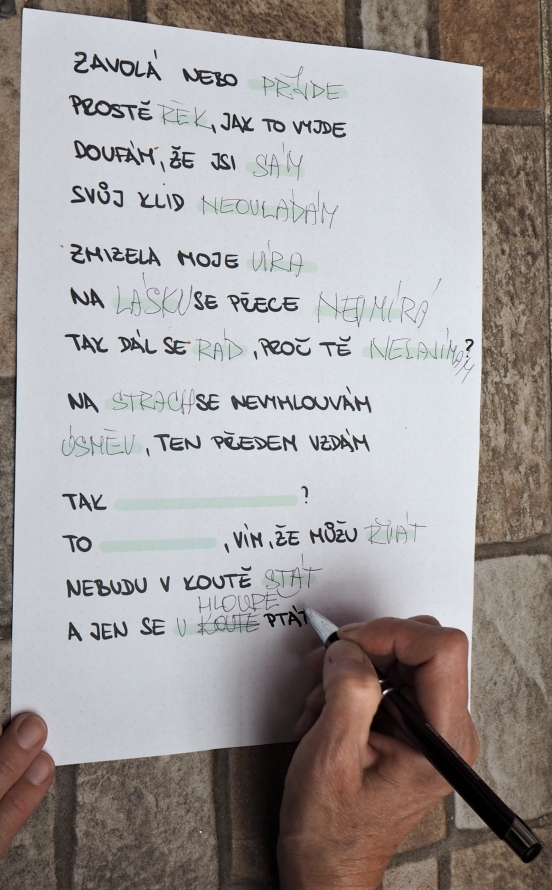 ZAVOLÁ NEBO PŘIJDE
PROSTĚ ŘEK, JAK TO VYJDE
DOUFÁM, ŽE JSI SÁM
SVŮJ KLID NEOVLÁDÁM
ZMIZELA MOJE VÍRA
NA LÁSKU SE PŘECE NEUMÍRÁ
TAK DÁL SE RÁD, PROČ TĚ NEZAJÍMÁM?
NA STRACH SE NEVYMLOUVÁM
ÚSMĚV, TEN PŘEDEM VZDÁM
TAK ?
TO , VÍM, ŽE MŮŽU ŘVÁT
NEBUDU V KOUTĚ STÁT
HLOUPĚ
A JEN SE V KOUTĚ PTÁT